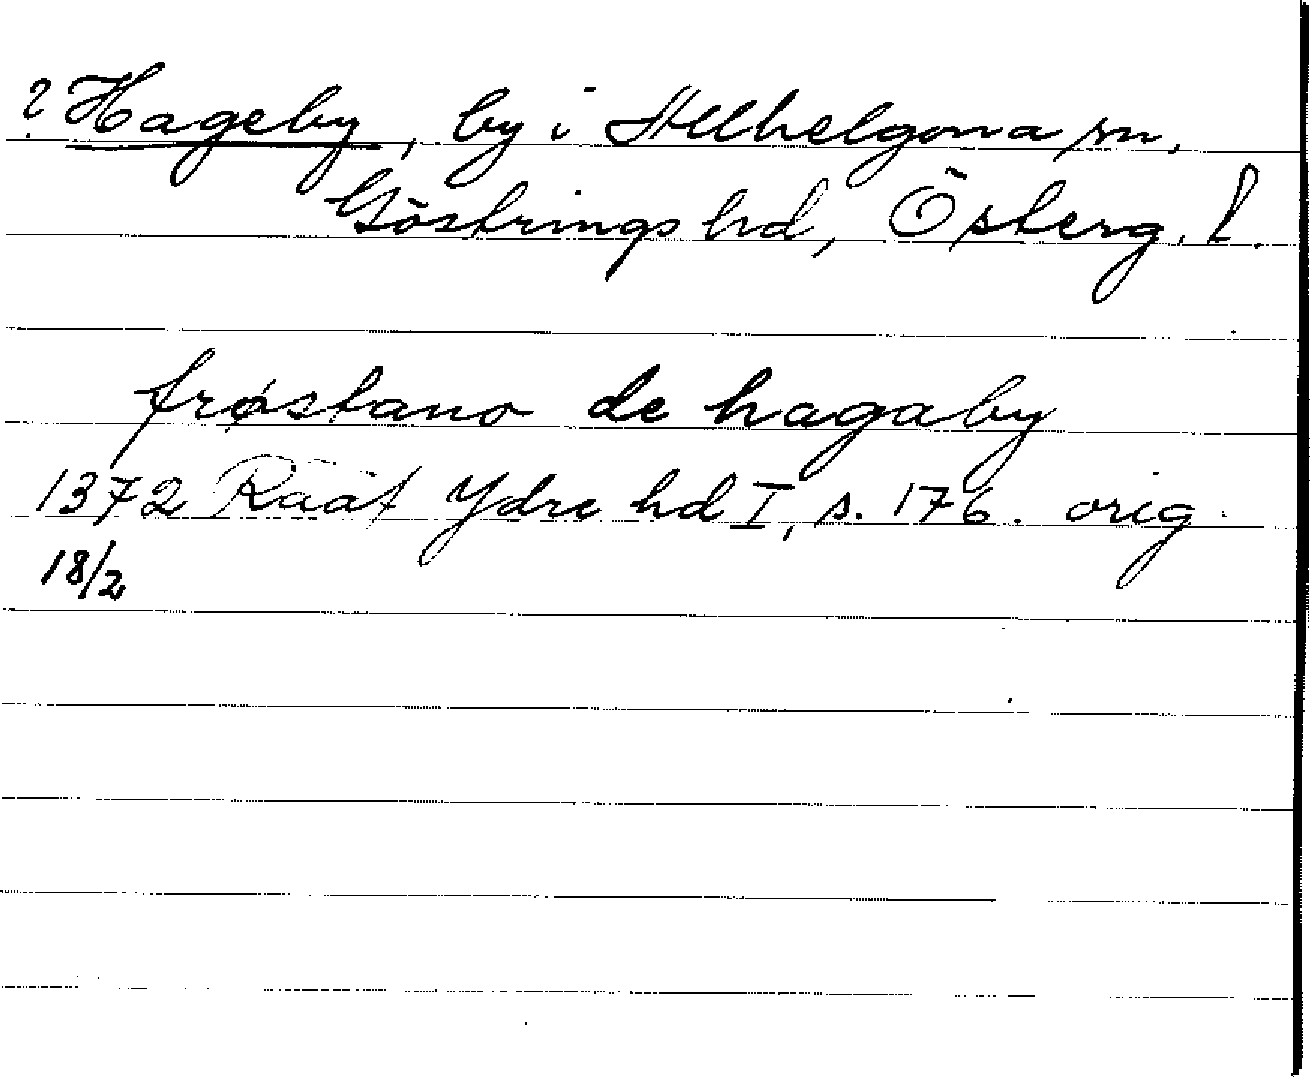 ? Hageby, by i Allhelgona sn,
Göstrings hd, Österg. l.
frøstano de hagaby
1372 Rääf Ydre hd I, s. 176. orig.
18/2